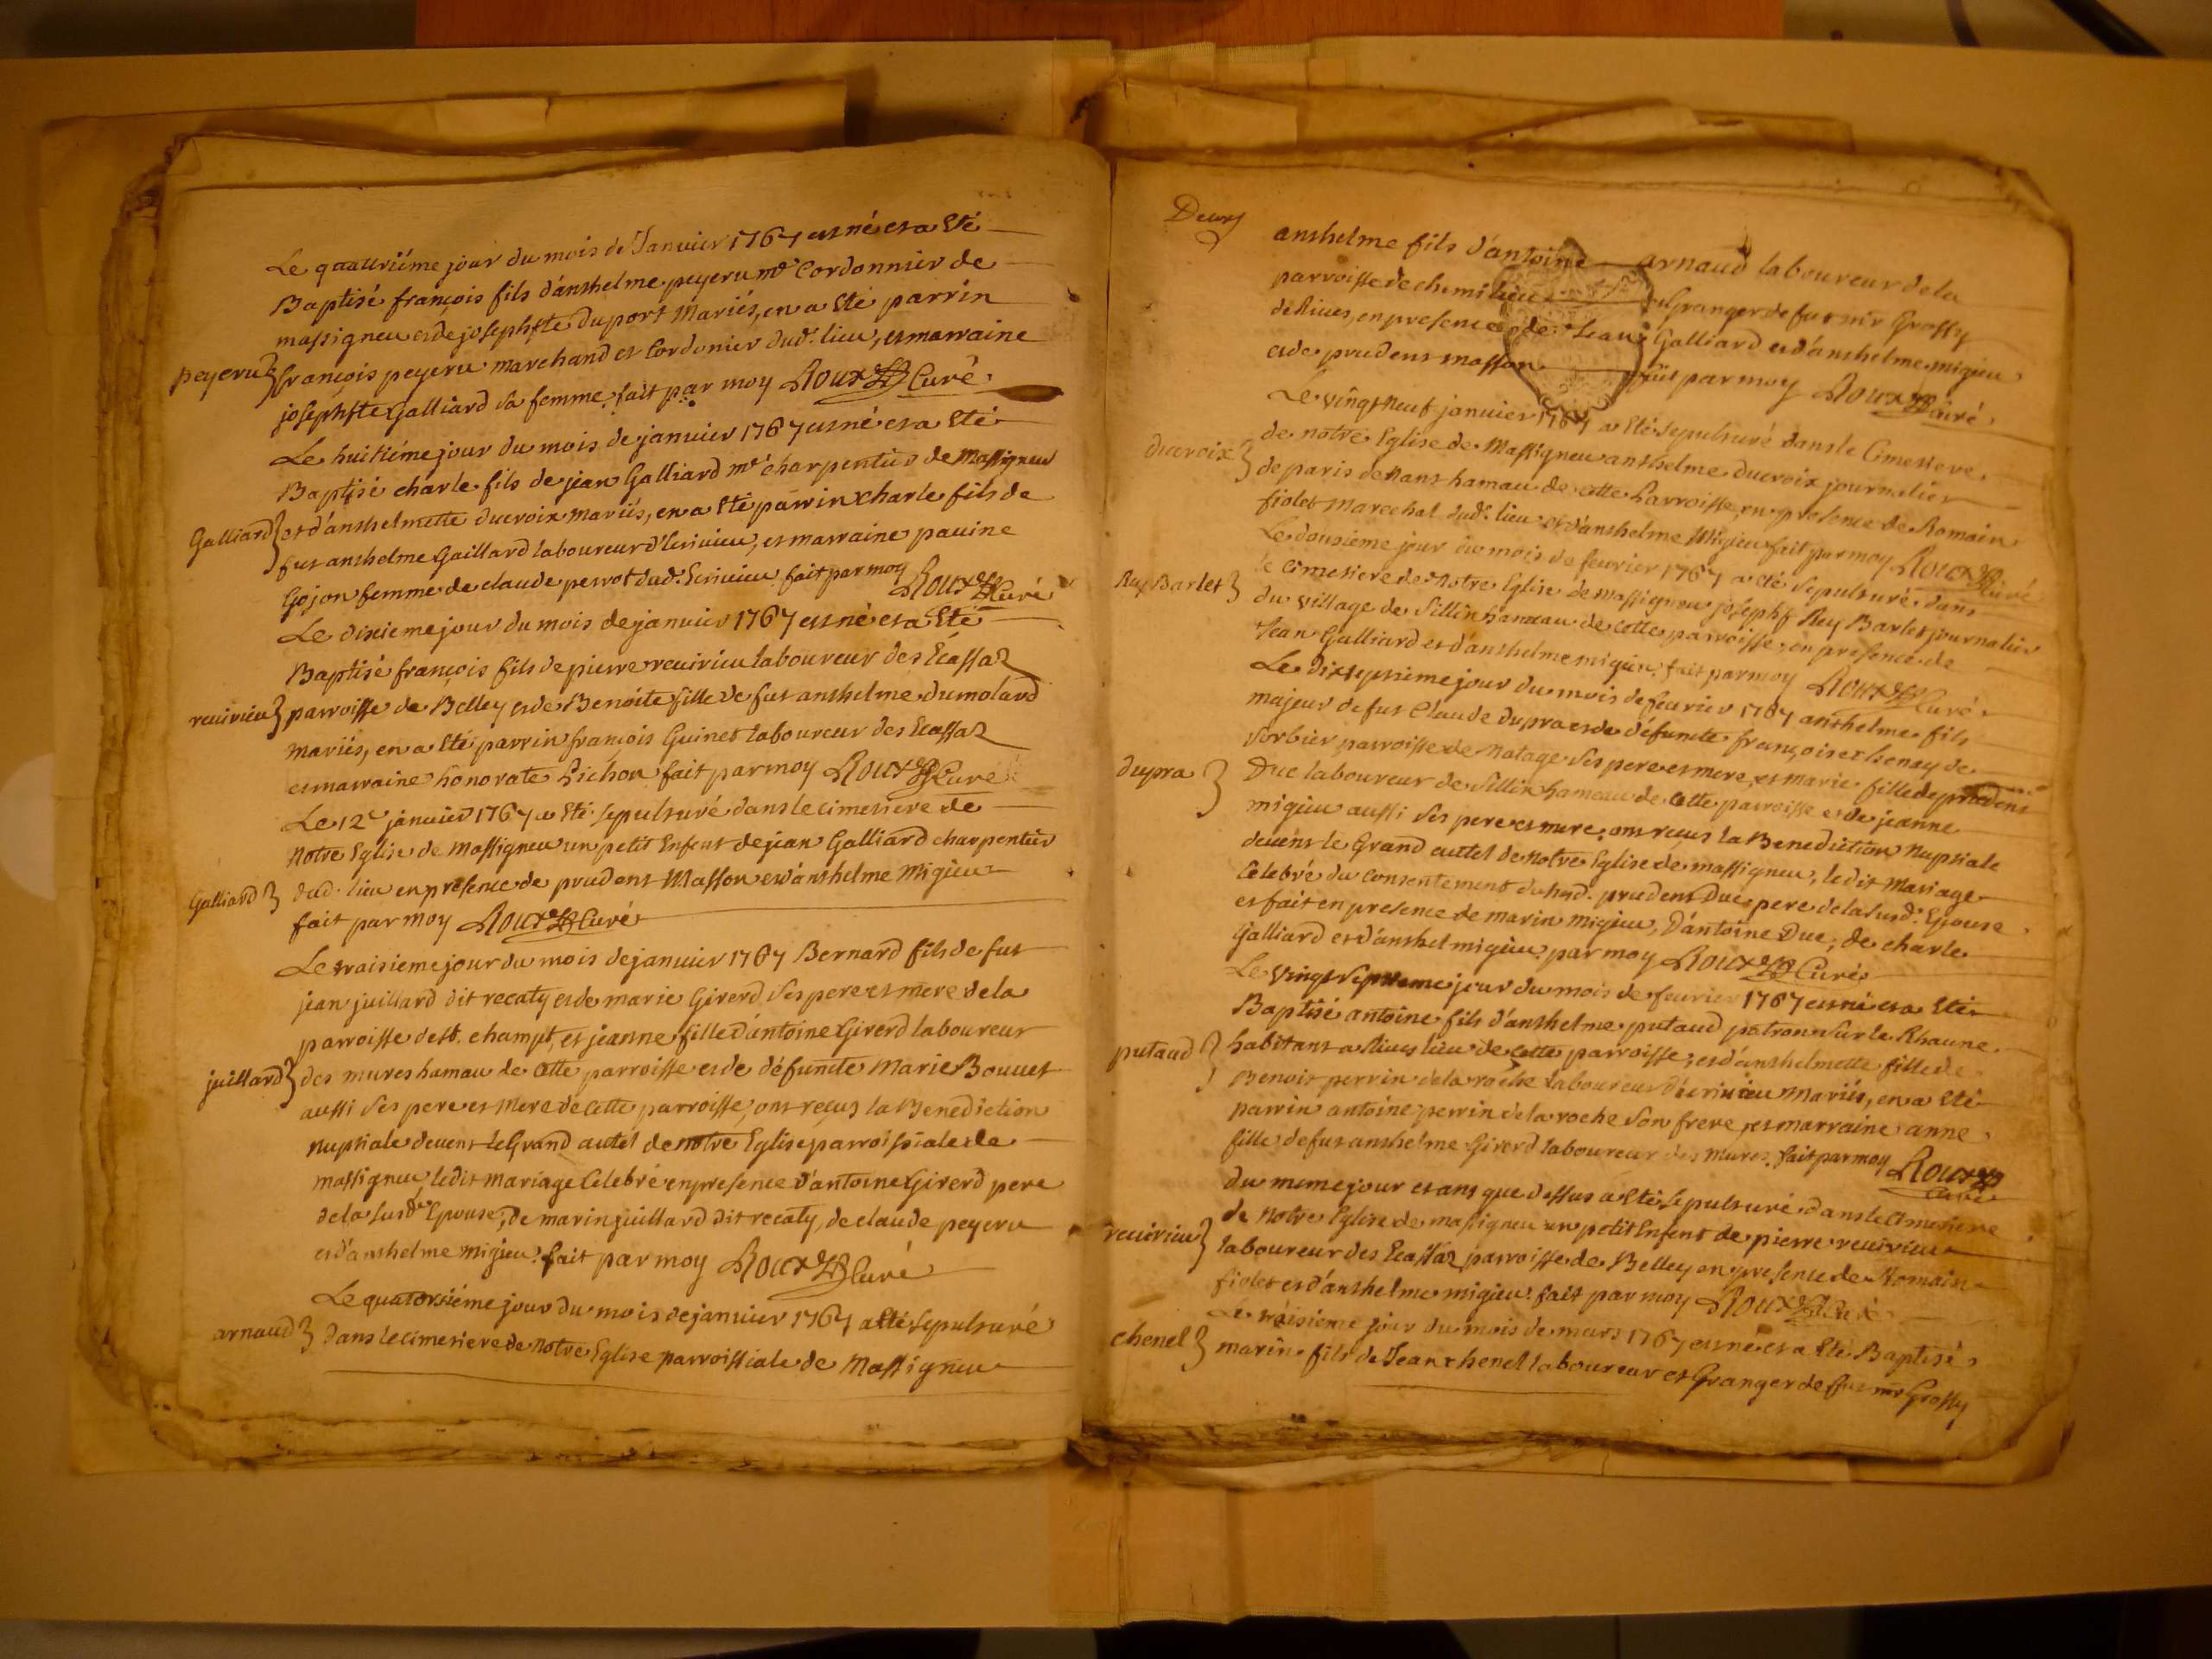 Le quatriéme jour du mois de Janvier 1767 est né et a Eté
Baptisé françois fils d'anthelme peyeru me Cordonnier de
massigneu et de josephte duport Mariés, en a Eté parrin
peyeru françois peyeru marchand et Cordonier dud. lieu, et marraine
josephte Galliard sa femme fait par moy Roux Curé
Le huitiéme jour du mois de janvier 1767 est né et a Eté
Baptisé charle fils de jean Galliard me charpentier de Massigneu
Galliard et d'anthelmette ducroix mariés, en a Eté parrin charle fils de
fut anthelme Gaillard laboureur d'Ecrivieu, et marraine pavine
Gojon femme de claude perrot dud. Ecrivieu fait par moy Roux Curé
Le dixieme jour du mois de janvier 1767 est né et a Eté
Baptisé françois fils de pierre revirieu laboureur des Ecassaz
revirieu parroisse de Belley et de Benoite fille de fut anthelme dumolard
mariés, en a Eté parrin francois Guinet laboureur des Ecassaz
et marraine honorate Pichon fait par moy Roux Curé
Le 12e janvier 1767 a Eté sepulturé dans le cimetiere de
Notre Eglise de Massigneu un petit Enfent de jean Galliard charpentier
Galliard dud. lieu en presence de prudent Masson et d'anthelme Migieu
fait par moy Roux Curé
Le traisieme jour du mois de janvier 1767 Bernard fils de fut
jean juillard dit recaty et de marie Girerd ses pere et mere de la
parroisse de st. champt, et jeanne fille d'antoine Girerd laboureur
juillard des mures hamau de Cette parroisse et de défuncte Marie Bouvet
aussi ses pere et Mere de Cette parroisse, ont reçus la Benediction
Nuptiale devent le Grand autel de notre Eglise parroissiale de
massigneu, ledit mariage Celebré en presence d'antoine Girerd pere
de la susde Epouse, de marin juillard dit recaty, de claude peyeru
et d'anthelme migieu. fait par moy Roux Curé
Le quatorsiéme jour du mois de janvier 1767 a Eté sepulturé
arnaud dans le cimetiere de Notre Eglise parroissiale de Massigneu
Deux
anthelme fils d'antoine arnaud laboureur de la
parroisse de chemilieu Granger de fut mr Grossy
de Rives, en presence de Jean Galliard et d'anthelme migieu
et de prudent masson fait par moy Roux Curé
Le vingt Neuf janvier 1767 a Eté sepulturé dans le Cimetiere
de notre Eglise de Massigneu anthelme ducroix journalier
ducroix de paris de Nant hamau de cette Parroisse, en presence de Romain
fiolet Marechal dud. lieu et d'anthelme Migieu fait par moy Roux Curé
Le dousieme jour du mois de fevrier 1767 a eté Sepulturé dans
le Cimetiere de Notre Eglise de massigneu joseph Rey Barlet journalier
Rey Barlet du village de Sillin hameau de cette parroisse, en presence de
Jean Galliard et d'anthelme migieu fait par moy Roux Curé
Le dixseptieme jour du mois de fevrier 1767 anthelme fils
majeur de fut Claude dupra et de défuncte françoise thenay de
Sorbier parroisse de Natage ses pere et mere, et marie fille de prudent
dupra Duc laboureur de Sillin hameau de Cette parroisse et de jeanne
migieu aussi ses pere et mere, ont reçus la Benediction Nuptiale
devent le Grand autel de Notre Eglise de massigneu, ledit Mariage
Celebré du consentement dud. prudent Duc pere de la susd. Epouse
et fait en presence de marin migieu, D'antoine Duc, de charle
Galliard et d'anthelme migieu, par moy Roux Curé
Le vingt Septieme jour du mois de fevrier 1767 est né et a Eté
Baptisé antoine fils d'anthelme putaud patron sur le Rhaune
putaud habitant a Rives lieu de Cette parroisse, et d'anthelmette fille de
Benoit perrin de la roche laboureur d'écrivieu mariés, en a Eté
parrin antoine perrin de la roche son frere, et marraine anne
fille de fut anthelme Girerd laboureur des Mures. fait par moy Roux Curé
du meme jour et ans que dessus a Eté Sepulturé dans le Cimetiere
de Notre Eglise de massigneu un petit Enfent de pierre revirieu
revirieu laboureur des Ecassaz parroisse de Belley en presence de Romain
fiolet et d'anthelme migieu. fait par moy Roux Curé
Le traisieme jour du mois de mars 1767 est né et a Eté Baptisé
chenel marin fils de Jean chenel laboureur et Granger de fut mr Grossy